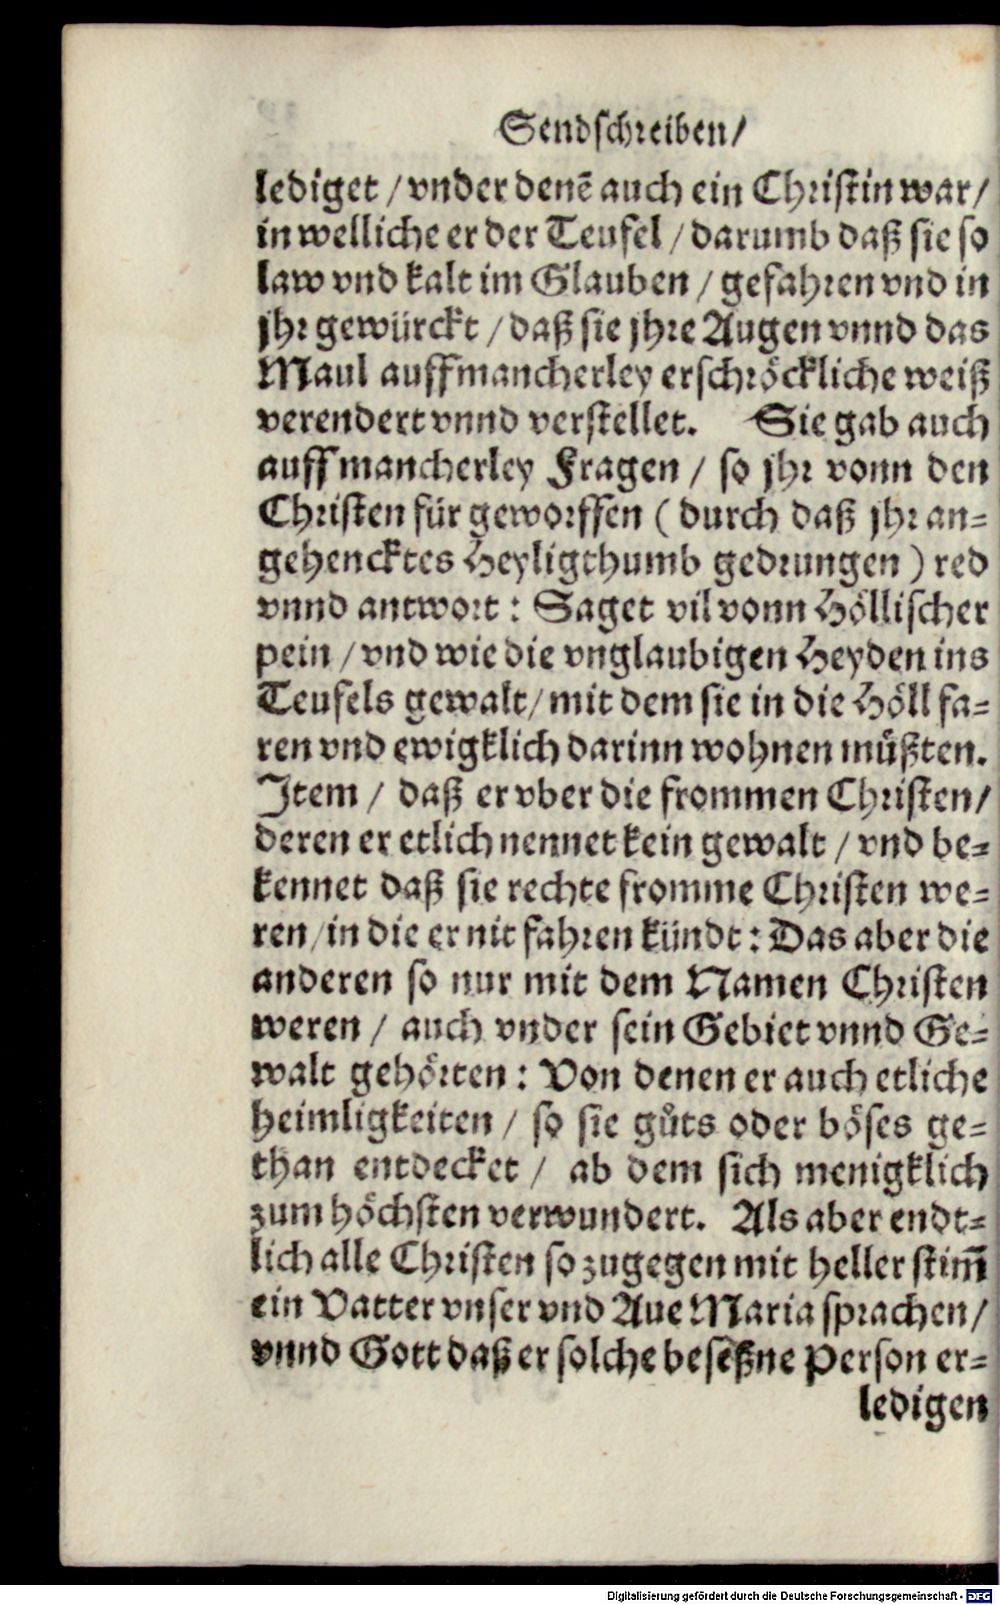 Sendschreiben/
lediget / vnder denē auch ein Christin war/
in welliche er der Teufel / darumb daß sie so
law vnd kalt im Glauben / gefahren vnd in
jhr gewürckt / daß sie jhre Augen vnnd das
Maul auff mancherley erschröckliche weiß
verendert vnnd verstellet. Sie gab auch
auff mancherley Fragen / so jhr vonn den
Christen für geworffen ( durch daß jhr an=
gehencktes Heyligthumb gedrungen ) red
vnnd antwort : Saget vil vonn Höllischer
pein / vnd wie die vnglaubigen Heyden ins
Teufels gewalt/ mit dem sie in die Höll fa=
ren vnd ewigklich darinn wohnen müßten.
Item / daß er vber die frommen Christen/
deren er etlich nennet kein gewalt / vnd be=
kennet daß sie rechte fromme Christen we=
ren/ in die er nit fahren kündt : Das aber die
anderen so nur mit dem Namen Christen
weren / auch vnder sein Gebiet vnnd Ge=
walt gehörten : Von denen er auch etliche
heimligkeiten / so sie gůts oder böses ge=
than entdecket / ab dem sich menigklich
zum höchsten verwundert. Als aber endt=
lich alle Christen so zugegen mit heller stim̄
ein Vatter vnser vnd Aue Maria sprachen/
vnnd Gott daß er solche beseßne Person er=
ledigen
Digitalisierung gefördert durch die Deutsche Forschungsgemeinschaft - DFG